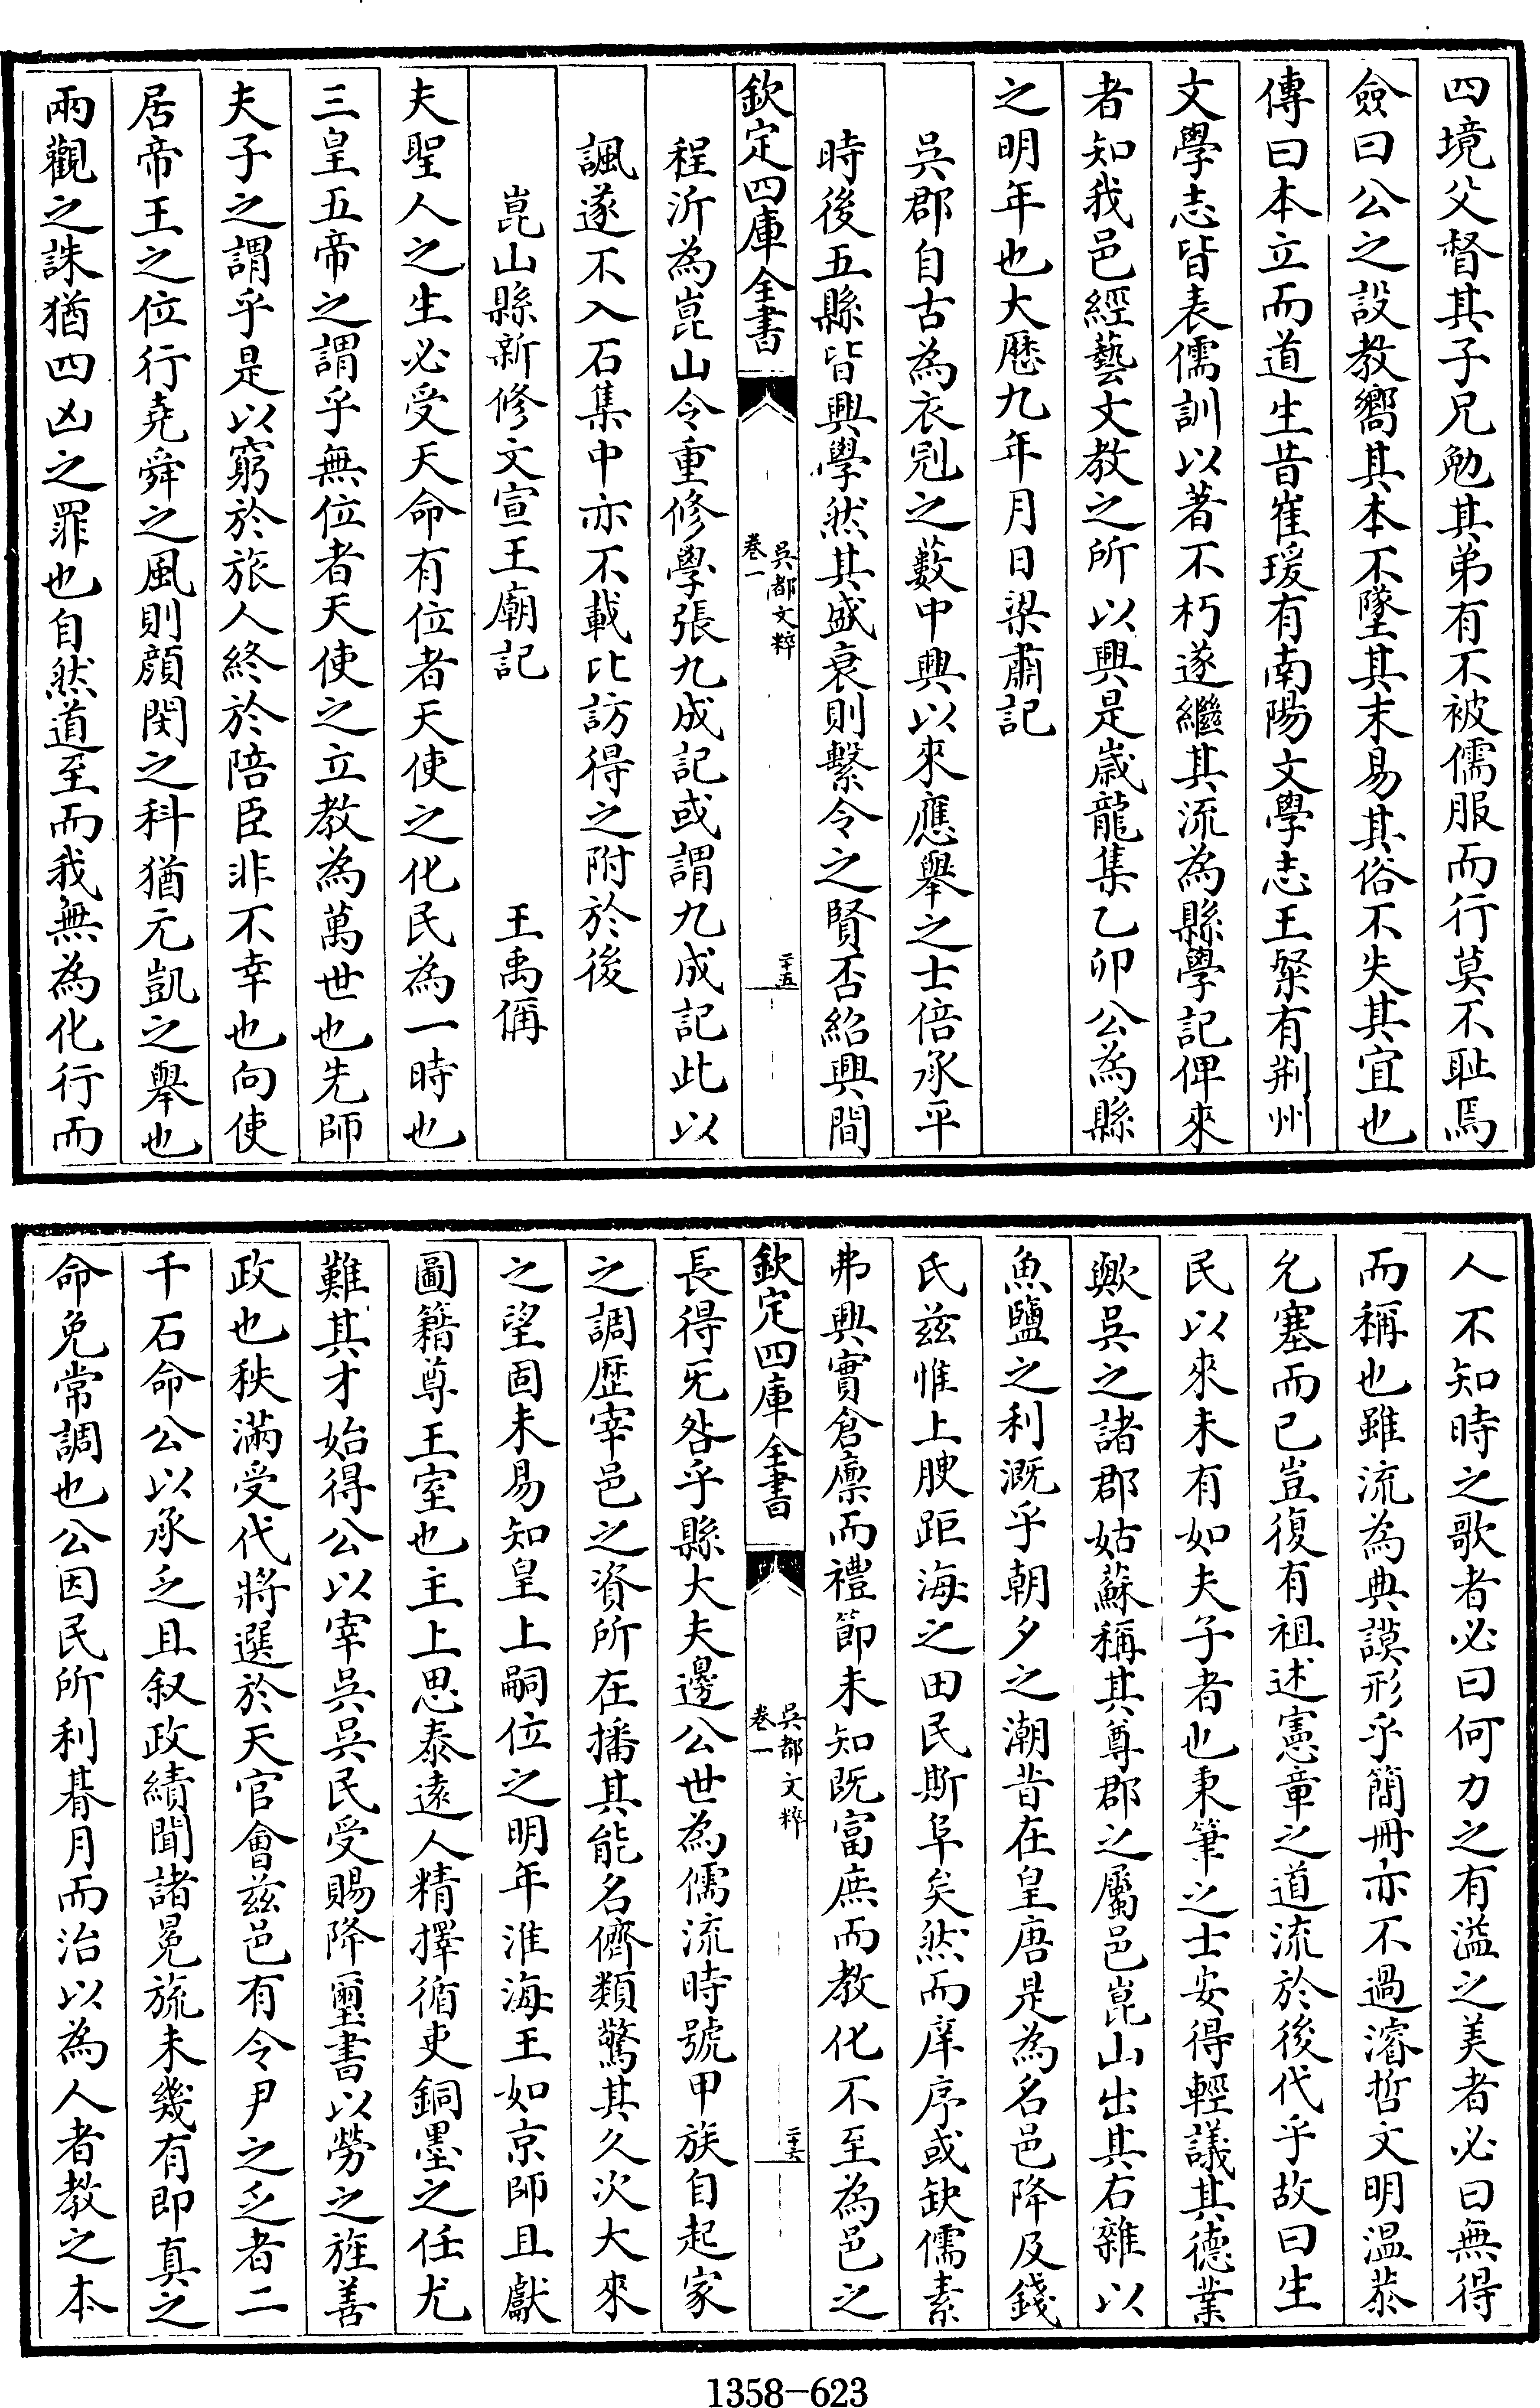 四境父督其子兄勉其弟有不被儒服而行莫不恥焉
僉曰公之設教嚮其本不墜其末易其俗不失其宜也
傳曰本立而道生昔崔瑗有南陽文學志王粲有荆州
文學志皆表儒訓以著不朽遂繼其流為縣學記俾來
者知我邑經藝文教之所以興是歲龍集乙卯公為縣
之明年也大厯九年月日梁肅記
吳郡自古為衣冠之藪中興以來應舉之士倍承平
時後五縣皆興學然其盛衰則繫令之賢否紹興間
欽定四庫全書
吳都文粹
卷一
二十五
程沂為崑山令重修學張九成記或謂九成記此以
諷遂不入石集中亦不載比訪得之附於後
崑山縣新修文宣王廟記 王禹偁
夫聖人之生必受天命有位者天使之化民為一時也
三皇五帝之謂乎無位者天使之立教為萬世也先師
夫子之謂乎是以窮於旅人終於陪臣非不幸也向使
居帝王之位行堯舜之風則顔閔之科猶元凱之舉也
兩觀之誅猶四凶之罪也自然道至而我無為化行而
人不知時之歌者必曰何力之有溢之美者必曰無得
而稱也雖流為典謨形乎簡冊亦不過濬哲文明温恭
允塞而已豈復有祖述憲章之道流於後代乎故曰生
民以來未有如夫子者也秉筆之士安得輕議其德業
歟吳之諸郡姑蘇稱其尊郡之屬邑崑山出其右雜以
魚鹽之利溉乎朝夕之潮昔在皇唐是為名邑降及錢
氏兹惟上腴距海之田民斯阜矣然而庠序或缺儒素
弗興實倉廪而禮節未知既富庶而教化不至為邑之
欽定四庫全書
吳都文粹
卷一
二十六
長得旡咎乎縣大夫邊公世為儒流時號甲族自起家
之調歴宰邑之資所在播其能名儕類驚其久次大來
之望固未易知皇上嗣位之明年淮海王如京師且獻
圖籍尊王室也主上思泰遠人精擇循吏銅墨之任尤
難其才始得公以宰吳吳民受賜降璽書以勞之旌善
政也秩滿受代將選於天官會兹邑有令尹之乏者二
千石命公以承乏且叙政績聞諸冕旒未幾有即真之
命免常調也公因民所利朞月而治以為人者教之本
1358-623